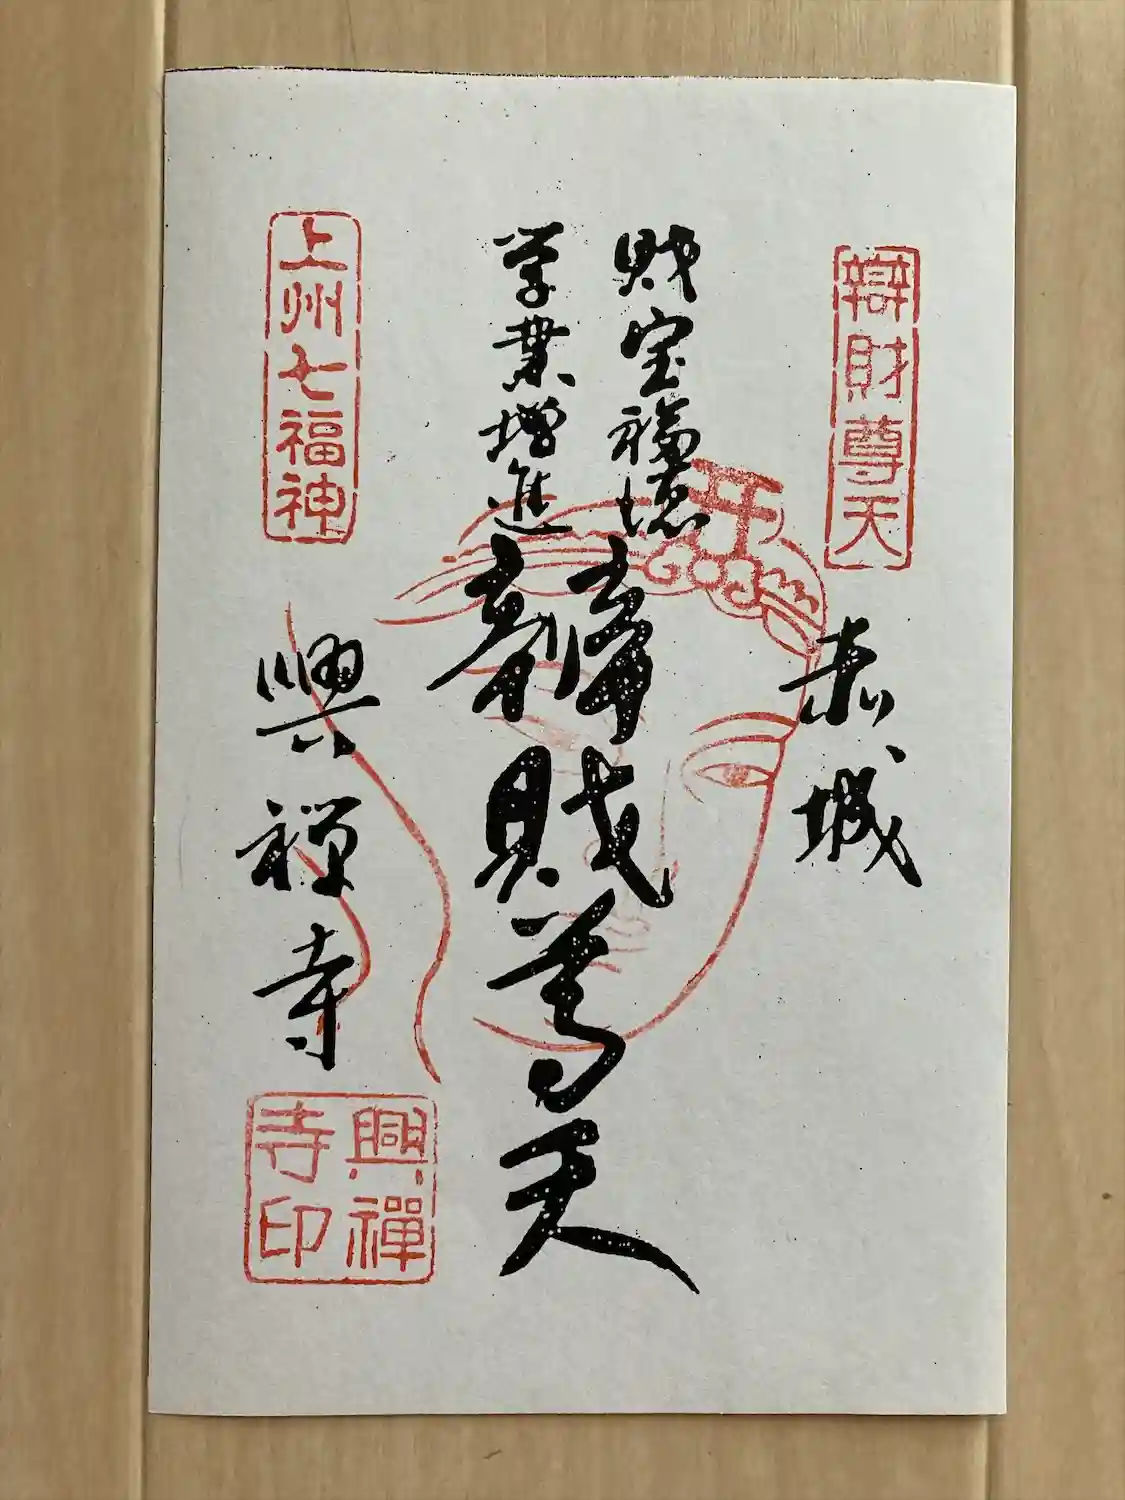 辯財尊天
赤城
財宝福徳
学業増進
辯財尊天
上州七福神
興禅寺
興禪
寺印